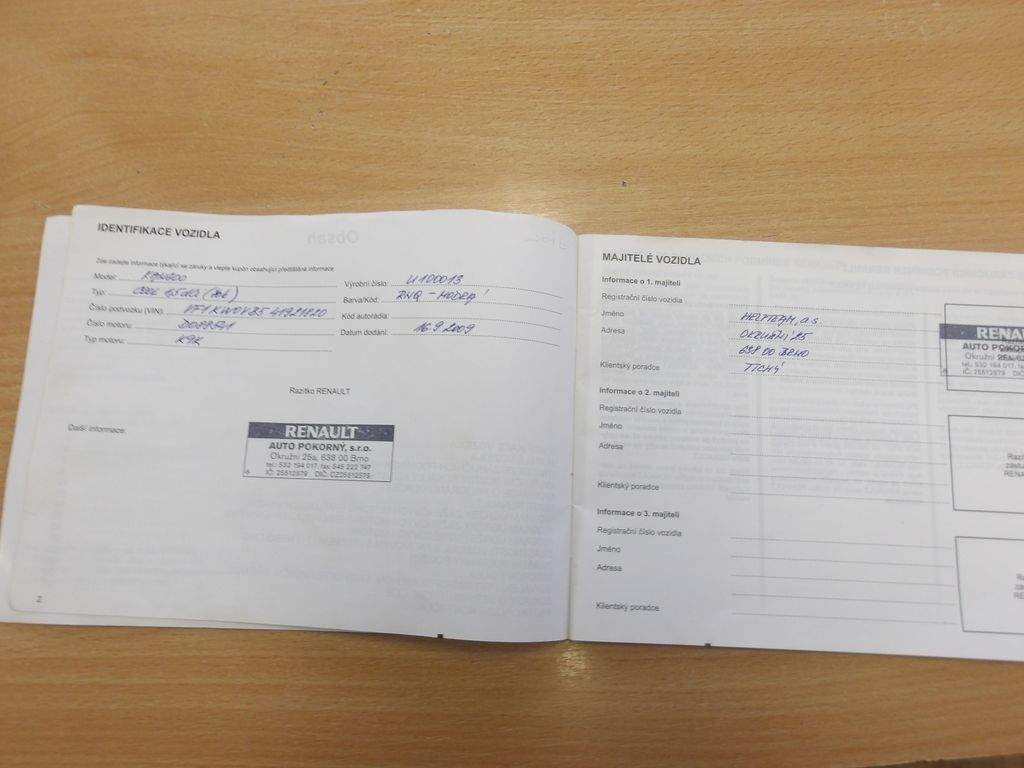 IDENTIFIKACE VOZIDLA
Zde zadejte informace týkající se záruky a vlepte kupón obsahující předtištěné informace
Model: KANGOO
Typ: COOL 1,5 dCi
Číslo podvozku (VIN):
Číslo motoru:
Typ motoru: K9K
Výrobní číslo: U100013
Barva/Kód: RNQ - MODRÁ
Kód autorádia:
Datum dodání: 16.9.2009
Razítko RENAULT
Další informace:
RENAULT
AUTO POKORNÝ, s.r.o.
Okružní 25a, 638 00 Brno
tel.: 532 194 017, fax: 545 222 747
IČ: 25512579 DIČ: CZ25512579
2
MAJITELÉ VOZIDLA
Informace o 1. majiteli
Registrační číslo vozidla
Jméno HELPTEAM, a.s.
Adresa OKRUŽNÍ 25
638 00 BRNO
Klientský poradce TICHÝ
RENA
AUTO POKOR
Okružní 25a, 6
tel.: 532 194 017, fa
IČ: 25512579 DI
Informace o 2. majiteli
Registrační číslo vozidla
Jméno
Adresa
Klientský poradce
Razí
zástu
RENA
Informace o 3. majiteli
Registrační číslo vozidla
Jméno
Adresa
Klientský poradce